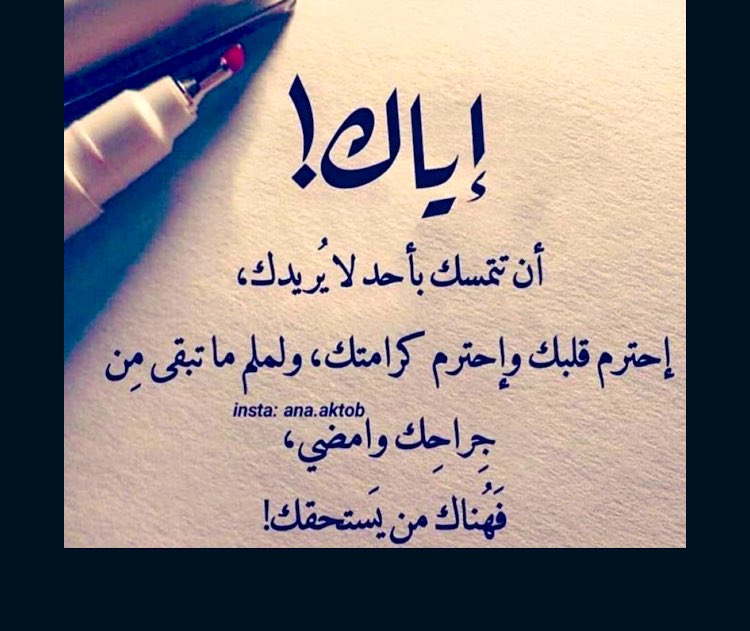 إياك!
أن تتمسك بأحد لا يُريدك،
إحترم قلبك وإحترم كرامتك، ولملم ما تبقى مِن
insta: ana.aktob
جِراحِك وامضي،
فَهُناك من يَستحقك!